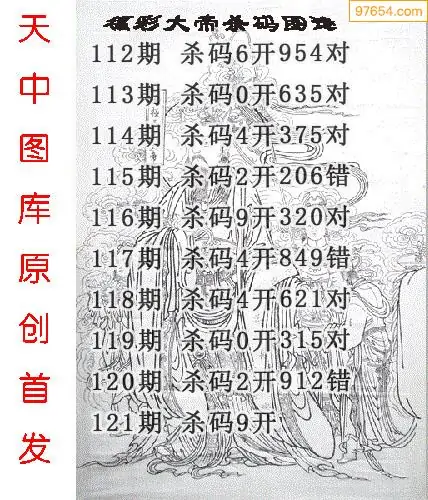 97654.com
福彩大帝杀码图
天中图库原创首发
112期 杀码6开954对
113期 杀码0开635对
114期 杀码4开375对
115期 杀码2开206错
116期 杀码9开320对
117期 杀码4开849错
118期 杀码4开621对
119期 杀码0开315对
120期 杀码2开912错
121期 杀码9开